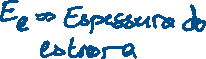 Ee => Espessura do
estriora